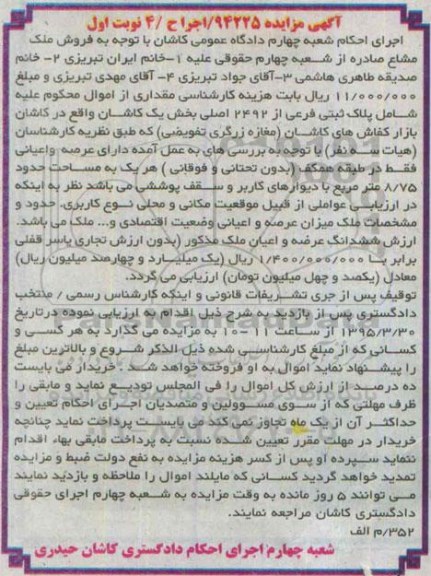 آگهی مزایده ۹۴۲۲۵/اجرا ح /۴ نوبت اول
اجرای احکام شعبه چهارم دادگاه عمومی کاشان با توجه به فروش ملک
مشاع صادره از شعبه چهارم حقوقی علیه ۱-خانم ایران تبریزی ۲- خانم
صدیقه طاهری هاشمی ۳-آقای جواد تبریزی ۴- آقای مهدی تبریزی و مبلغ
۱۱/۰۰۰/۰۰۰ ریال بابت هزینه کارشناسی مقداری از اموال محکوم علیه
شامل پلاک ثبتی فرعی از ۲۴۹۲ اصلی بخش یک کاشان واقع در کاشان
بازار کفاش های کاشان (مغازه زرگری تفویضی) که طبق نظریه کارشناسان
(هیات سه نفر) با توجه به بررسی های به عمل آمده دارای عرصه واعیانی
فقط در طبقه همکر (بدون تحتانی و فوقانی ) هر یک به مساحت حدود
۸/۷۵ متر مربع با دیوارهای کاربر و سقف پوششی می باشد نظر به اینکه
در ارزیابی عواملی از قبیل موقعیت مکانی و محلی نوع کاربری، حدود و
مشخصات ملک میزان عرصه و اعیانی وضعیت اقتصادی و... ملک می باشد.
ارزش ششدانگ عرصه و اعیان ملک مذکور (بدون ارزش تجاری یاسر قفلی
برابر با ۱/۴۰۰/۰۰۰/۰۰۰ ریال (یک میلیارد و چهارصد میلیون ریال)
معادل (یکصد و چهل میلیون تومان) ارزیابی می گردد.
توقیف پس از جری تشریفات قانونی و اینکه کارشناس رسمی / منتخب
دادگستری پس از بازدید به شرح ذیل اقدام به ارزیابی نموده درتاریخ
۱۳۹۵/۳/۳۰ از ساعت ۱۱-۱۰ به مزایده می گذارد به هر کسی و
کسانی که از مبلغ کارشناسی شده ذیل الذکر شروع و بالاترین مبلغ
را پیشنهاد نماید اموال به او فروخته خواهد شد . خریدار می بایست
ده درصد از ارزش کل اموال را فی المجلس تودیع نماید و مابقی را
ظرف مهلتی که از سوی مسوولین و متصدیان اجرای احکام تعیین و
حداکثر آن از یک ماه تجاوز نمی کند می بایست پرداخت نماید چنانچه
خریدار در مهلت مقرر تعیین شده نسبت به پرداخت مابقی بهاء اقدام
ننماید سپرده او پس از کسر هزینه مزایده به نفع دولت ضبط و مزایده
تمدید خواهد گردید کسانی که مایلند اموال را ملاحظه و بازدید نمایند
می توانند ۵ روز مانده به وقت مزایده به شعبه چهارم اجرای حقوقی
دادگستری کاشان مراجعه نمایند.
۳۵۲/م الف
شعبه چهارم اجرای احکام دادگستری کاشان حیدری